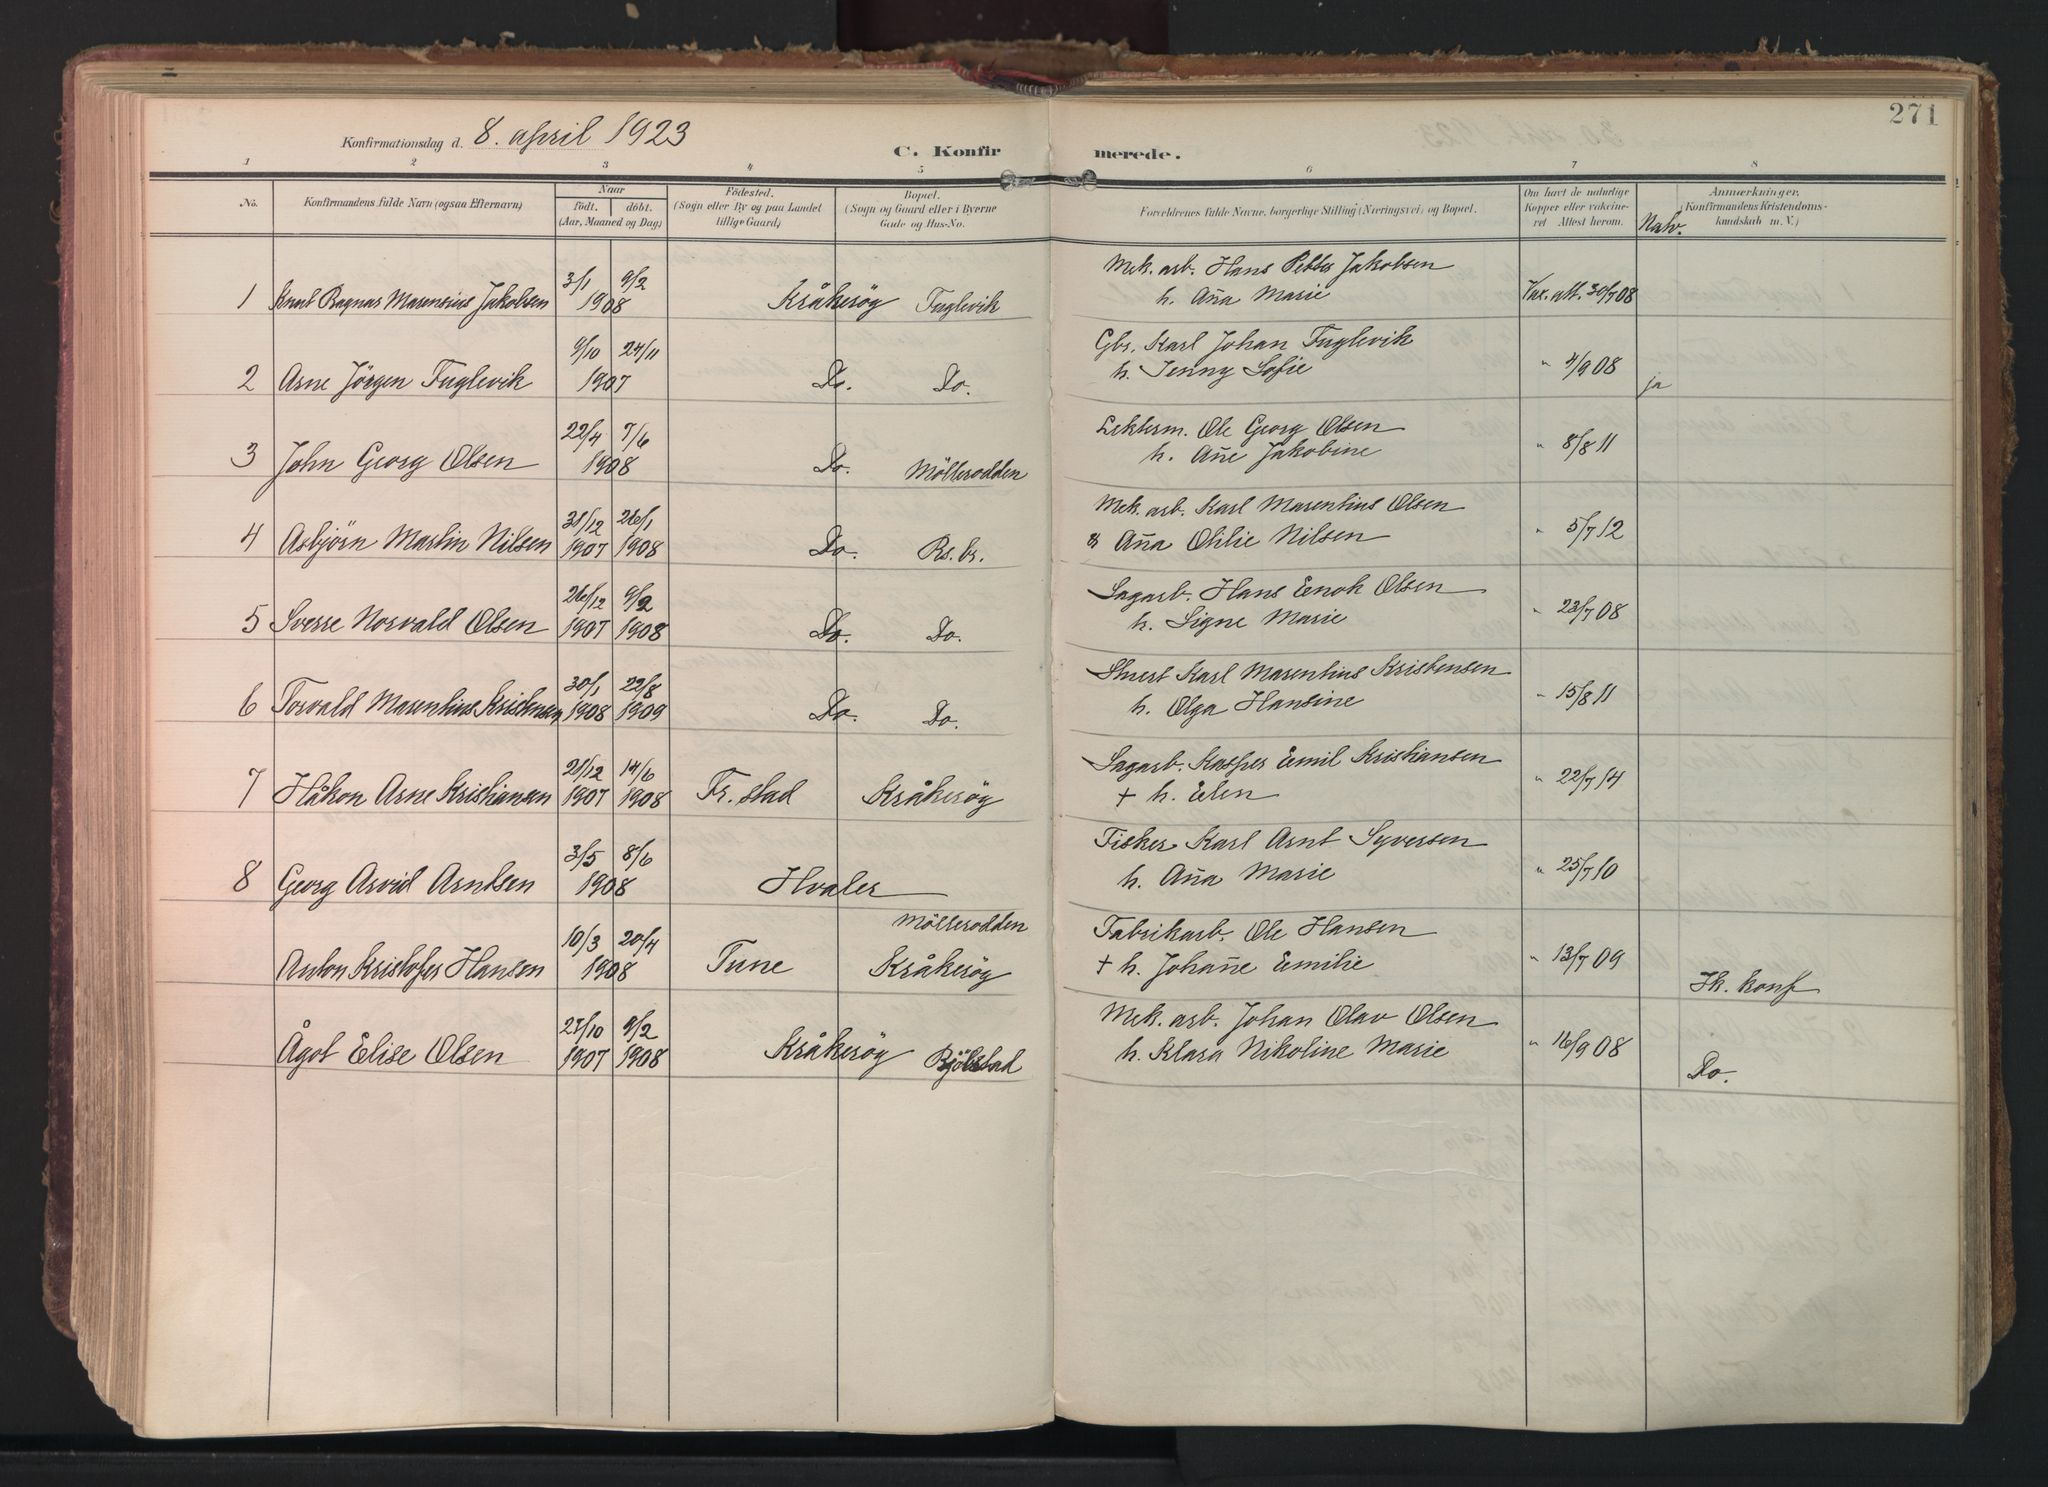 271
Konfirmationsdag d. 8. april 1923
C. Konfirmerede.
1 2 3 4 5 6 7 8
No.
Konfirmandens fulde Navn (ogsaa Efternavn)
Naar
födt. döbt.
(Aar, Maaned og Dag)
Födested.
(Sogn eller By og paa Landet
tillige Gaard)
Bopæl.
(Sogn og Gaard eller i Byerne
Gade og Hus-No.
Forældrenes fulde Navne, borgerlige Stilling (Næringsvei) og Bopæl.
Om havt de naturlige
Kopper eller vakcine-
ret Attest herom.
Natv.
Anmærkninger.
(Konfirmandens Kristendoms-
kundskab m. V.)
3/1 9/2 Mek. arb. Hans Petter Jakobsen
1 Knut Ragnar Marensius Jakobsen 1908 Kråkeröy Fuglevik h. Aña Marie Vax. att. 30/7 08
9/10 24/11 Gbr. Karl Johan Fuglevik
2 Arne Jörgen Fuglevik 1907 Do. Do. h. Jenny Sofie " 4/9 08 ja
22/4 7/6 Lekterm. Ole Georg Olsen
3 John Georg Olsen 1908 Do. Möllerodden h. Añe Jakobine " 8/8 11
31/12 26/1 Mek. arb. Karl Marentius Olsen
4 Asbjörn Martin Nilsen 1907 1908 Do. Rs. br. & Aña Otilie Nilsen " 5/7 12
26/12 9/2 Sagarb. Hans Enok Olsen
5 Sverre Norvald Olsen 1907 1908 Do. Do. h. Signe Marie " 23/7 08
30/1 22/8 Stuert Karl Marentius Kristensen
6 Torvald Marentius Kristensen 1908 1909 Do. Do. h. Olga Hansine " 15/8 11
21/12 14/6 Sagarb. Kasper Emil Kristiansen
7 Håkon Arne Kristiansen 1907 1908 Fr. stad Kråkeröy + h. Elen " 22/7 14
3/5 8/6 Fisker Karl Arnt Syversen
8 Georg Arvid Arntsen 1908 Hvaler h. Aña Marie " 25/7 10
10/3 20/4 Möllerodden Fabrikarb. Ole Hansen
Anton Kristofer Hansen 1908 Tune Kråkeröy + h. Johañe Emilie " 13/7 09 Ik. konf
27/10 9/2 Mek. arb. Johan Olav Olsen
Ågot Elise Olsen 1907 1908 Kråkeröy Bjölstad h. Klara Nikoline Marie " 16/9 08 Do.